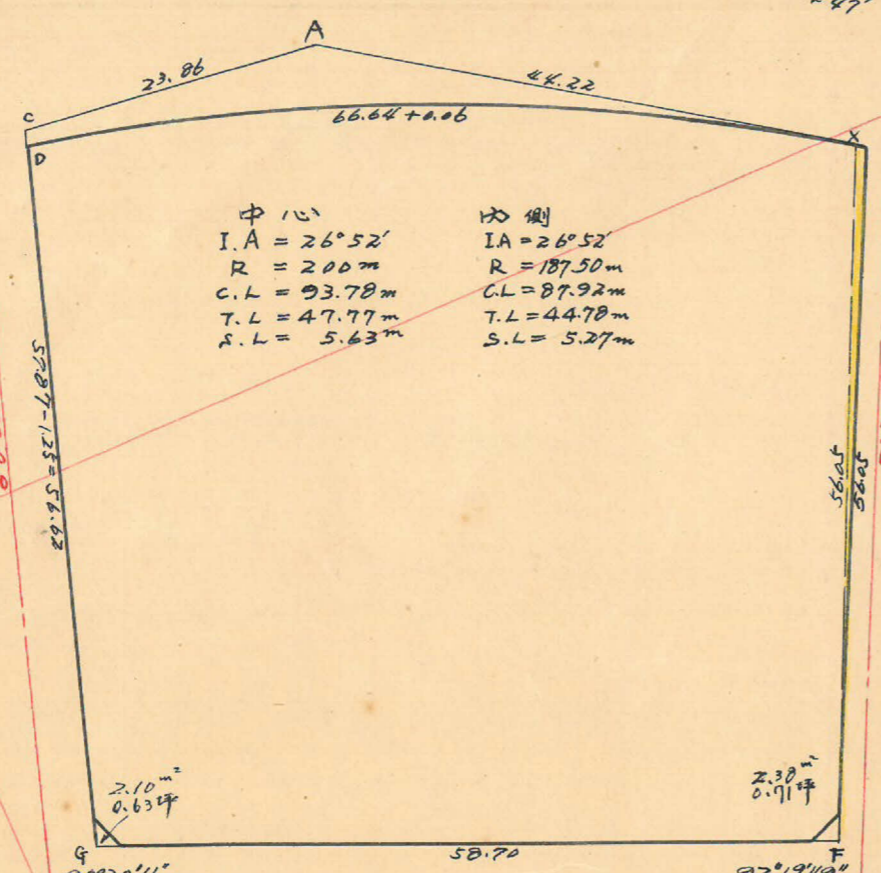 A
23.86
44.22
C
66.64+0.06
D
X
中心
I.A = 26°52'
R = 200m
C.L = 93.78m
T.L = 47.77m
S.L = 5.63m
内側
I.A = 26°52'
R = 187.50m
C.L = 87.92m
T.L = 44.78m
S.L = 5.27m
57.87-1.25=56.62
56.05
56.05
2.10m²
0.63坪
2.38m²
0.71坪
G
58.70
F